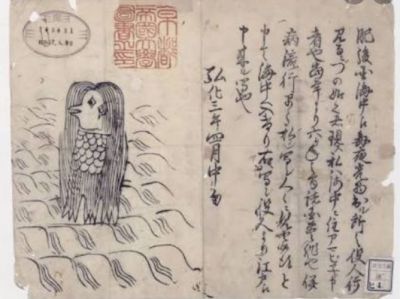 肥後国海中え毎夜光物出ル所之役人行
見るニづの如く者現ス私ハ海中ニ住アマビヱト申
者也当年より六ヶ年之間諸国豊作也併
病流行早々私ヲ写シ人々ニ見セ候得と
申て海中へ入けり右写シ役人より江戸え
申来ル写也
弘化三年四月中旬
京都
帝国大学
図書之印